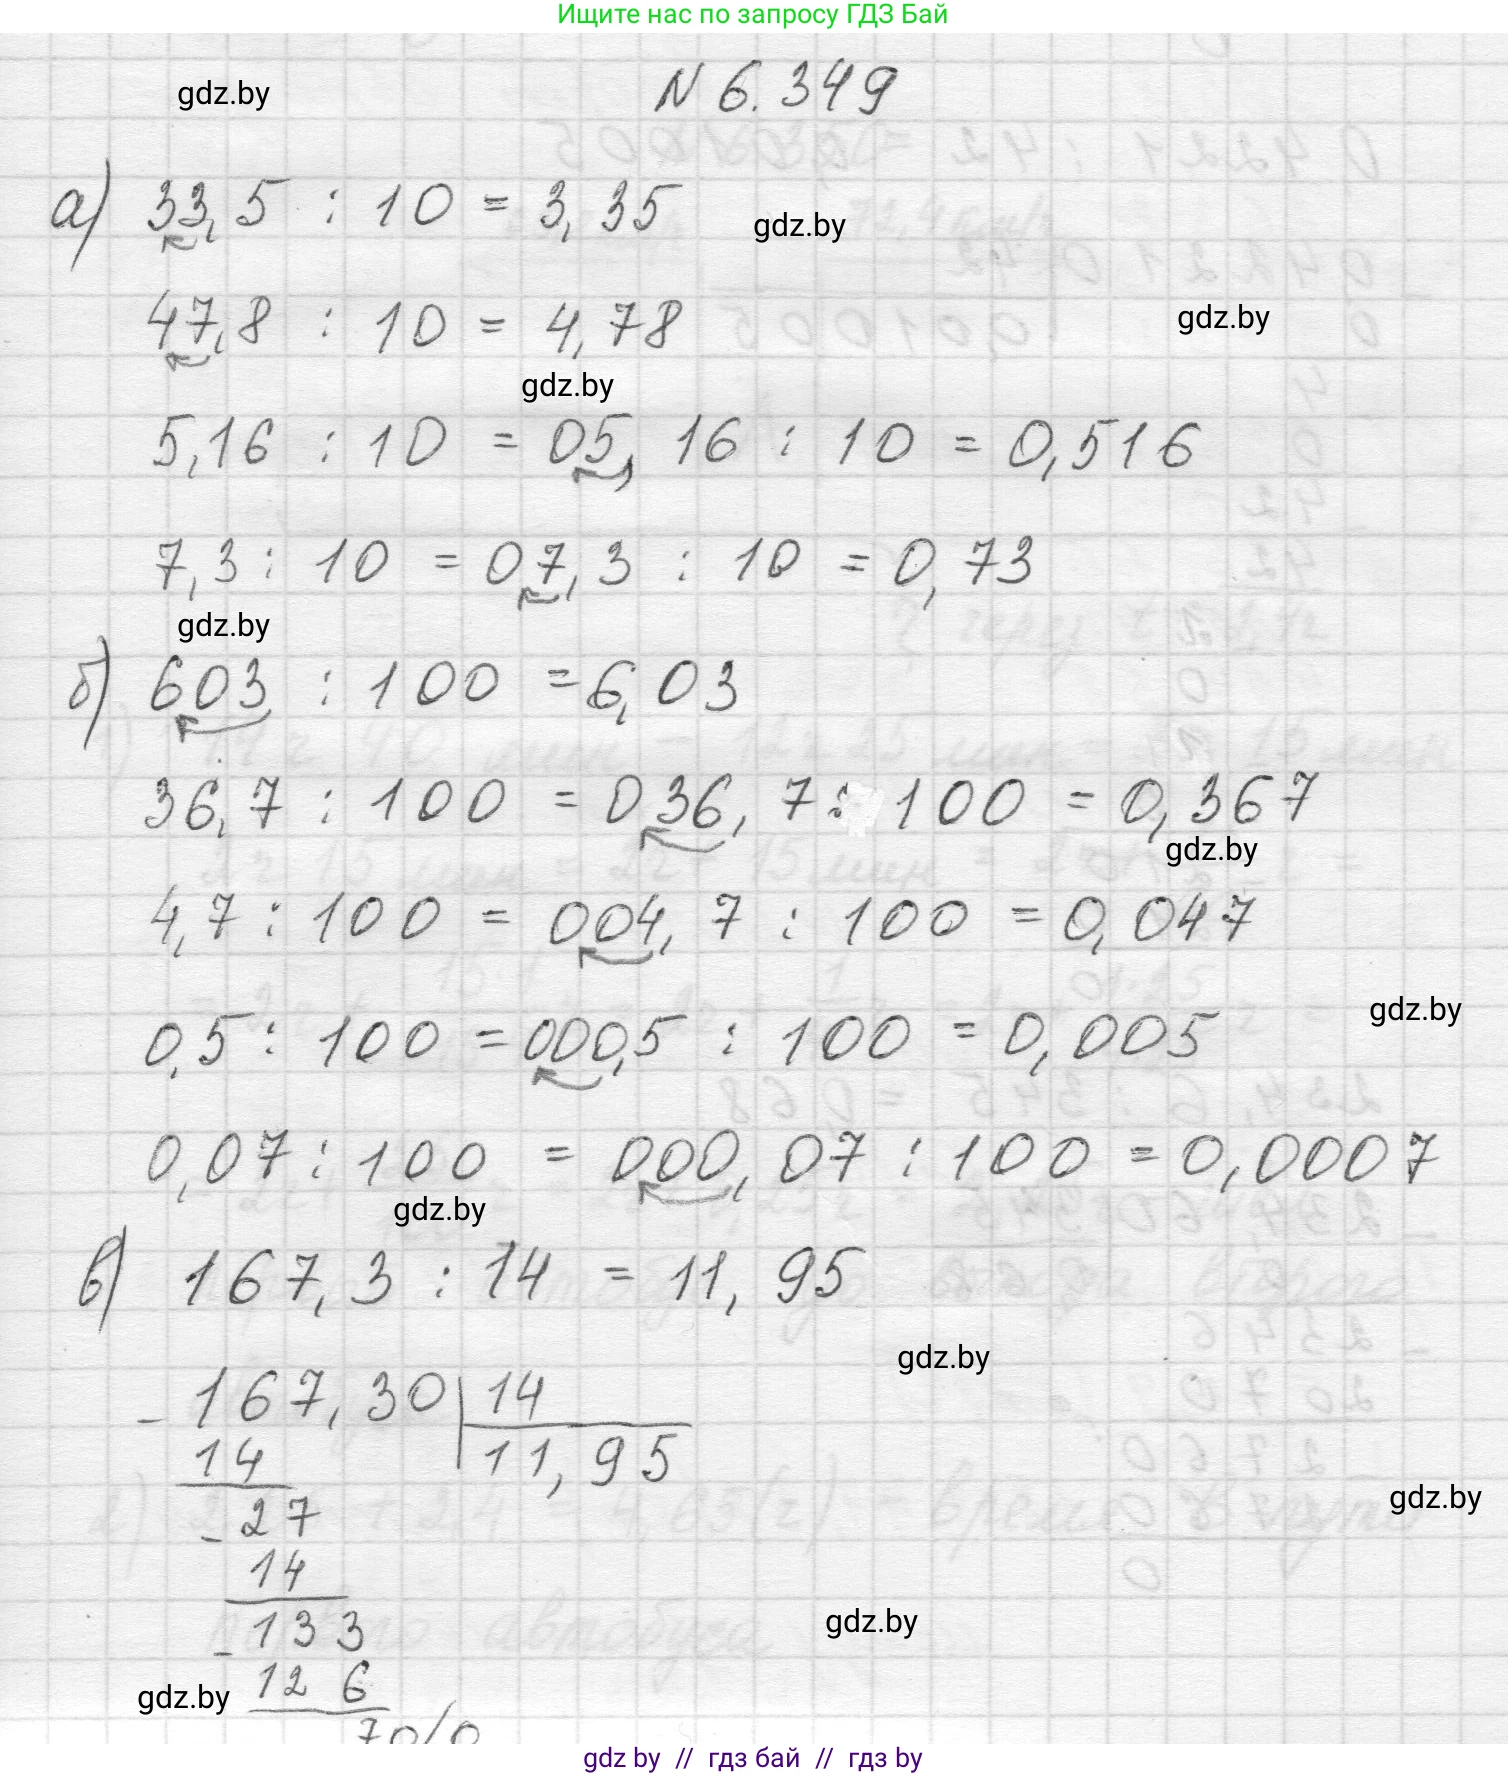 Ищите нас по запросу ГДЗ Бай
gdz.by
N 6.349
а) 33,5 : 10 = 3,35
gdz.by
47,8 : 10 = 4,78
gdz.by
gdz.by
5,16 : 10 = 05,16 : 10 = 0,516
7,3 : 10 = 07,3 : 10 = 0,73
gdz.by
б) 603 : 100 = 6,03
36,7 : 100 = 036,7 : 100 = 0,367
gdz.by
4,7 : 100 = 004,7 : 100 = 0,047
gdz.by
0,5 : 100 = 000,5 : 100 = 0,005
0,07 : 100 = 000,07 : 100 = 0,0007
gdz.by
в) 167,3 : 14 = 11,95
gdz.by
- 167,30 | 14
14 11,95
gdz.by
- 27
14
gdz.by
- 133
126
gdz.by
70/0
gdz by // гдз бай // гдз by